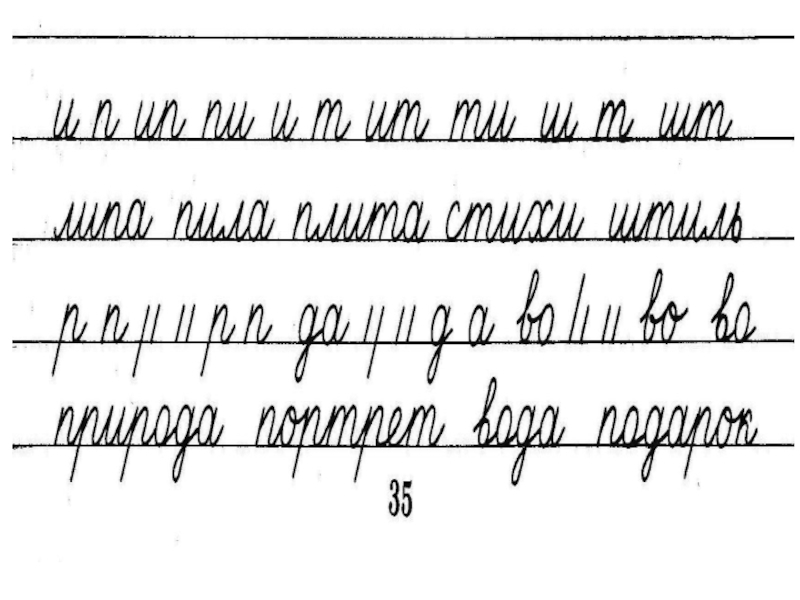 и п ип пи и т ит ти ш т шт
липа пила плита стихи штиль
р п // // р п да // // д а во // // во во
природа портрет вода подарок
35